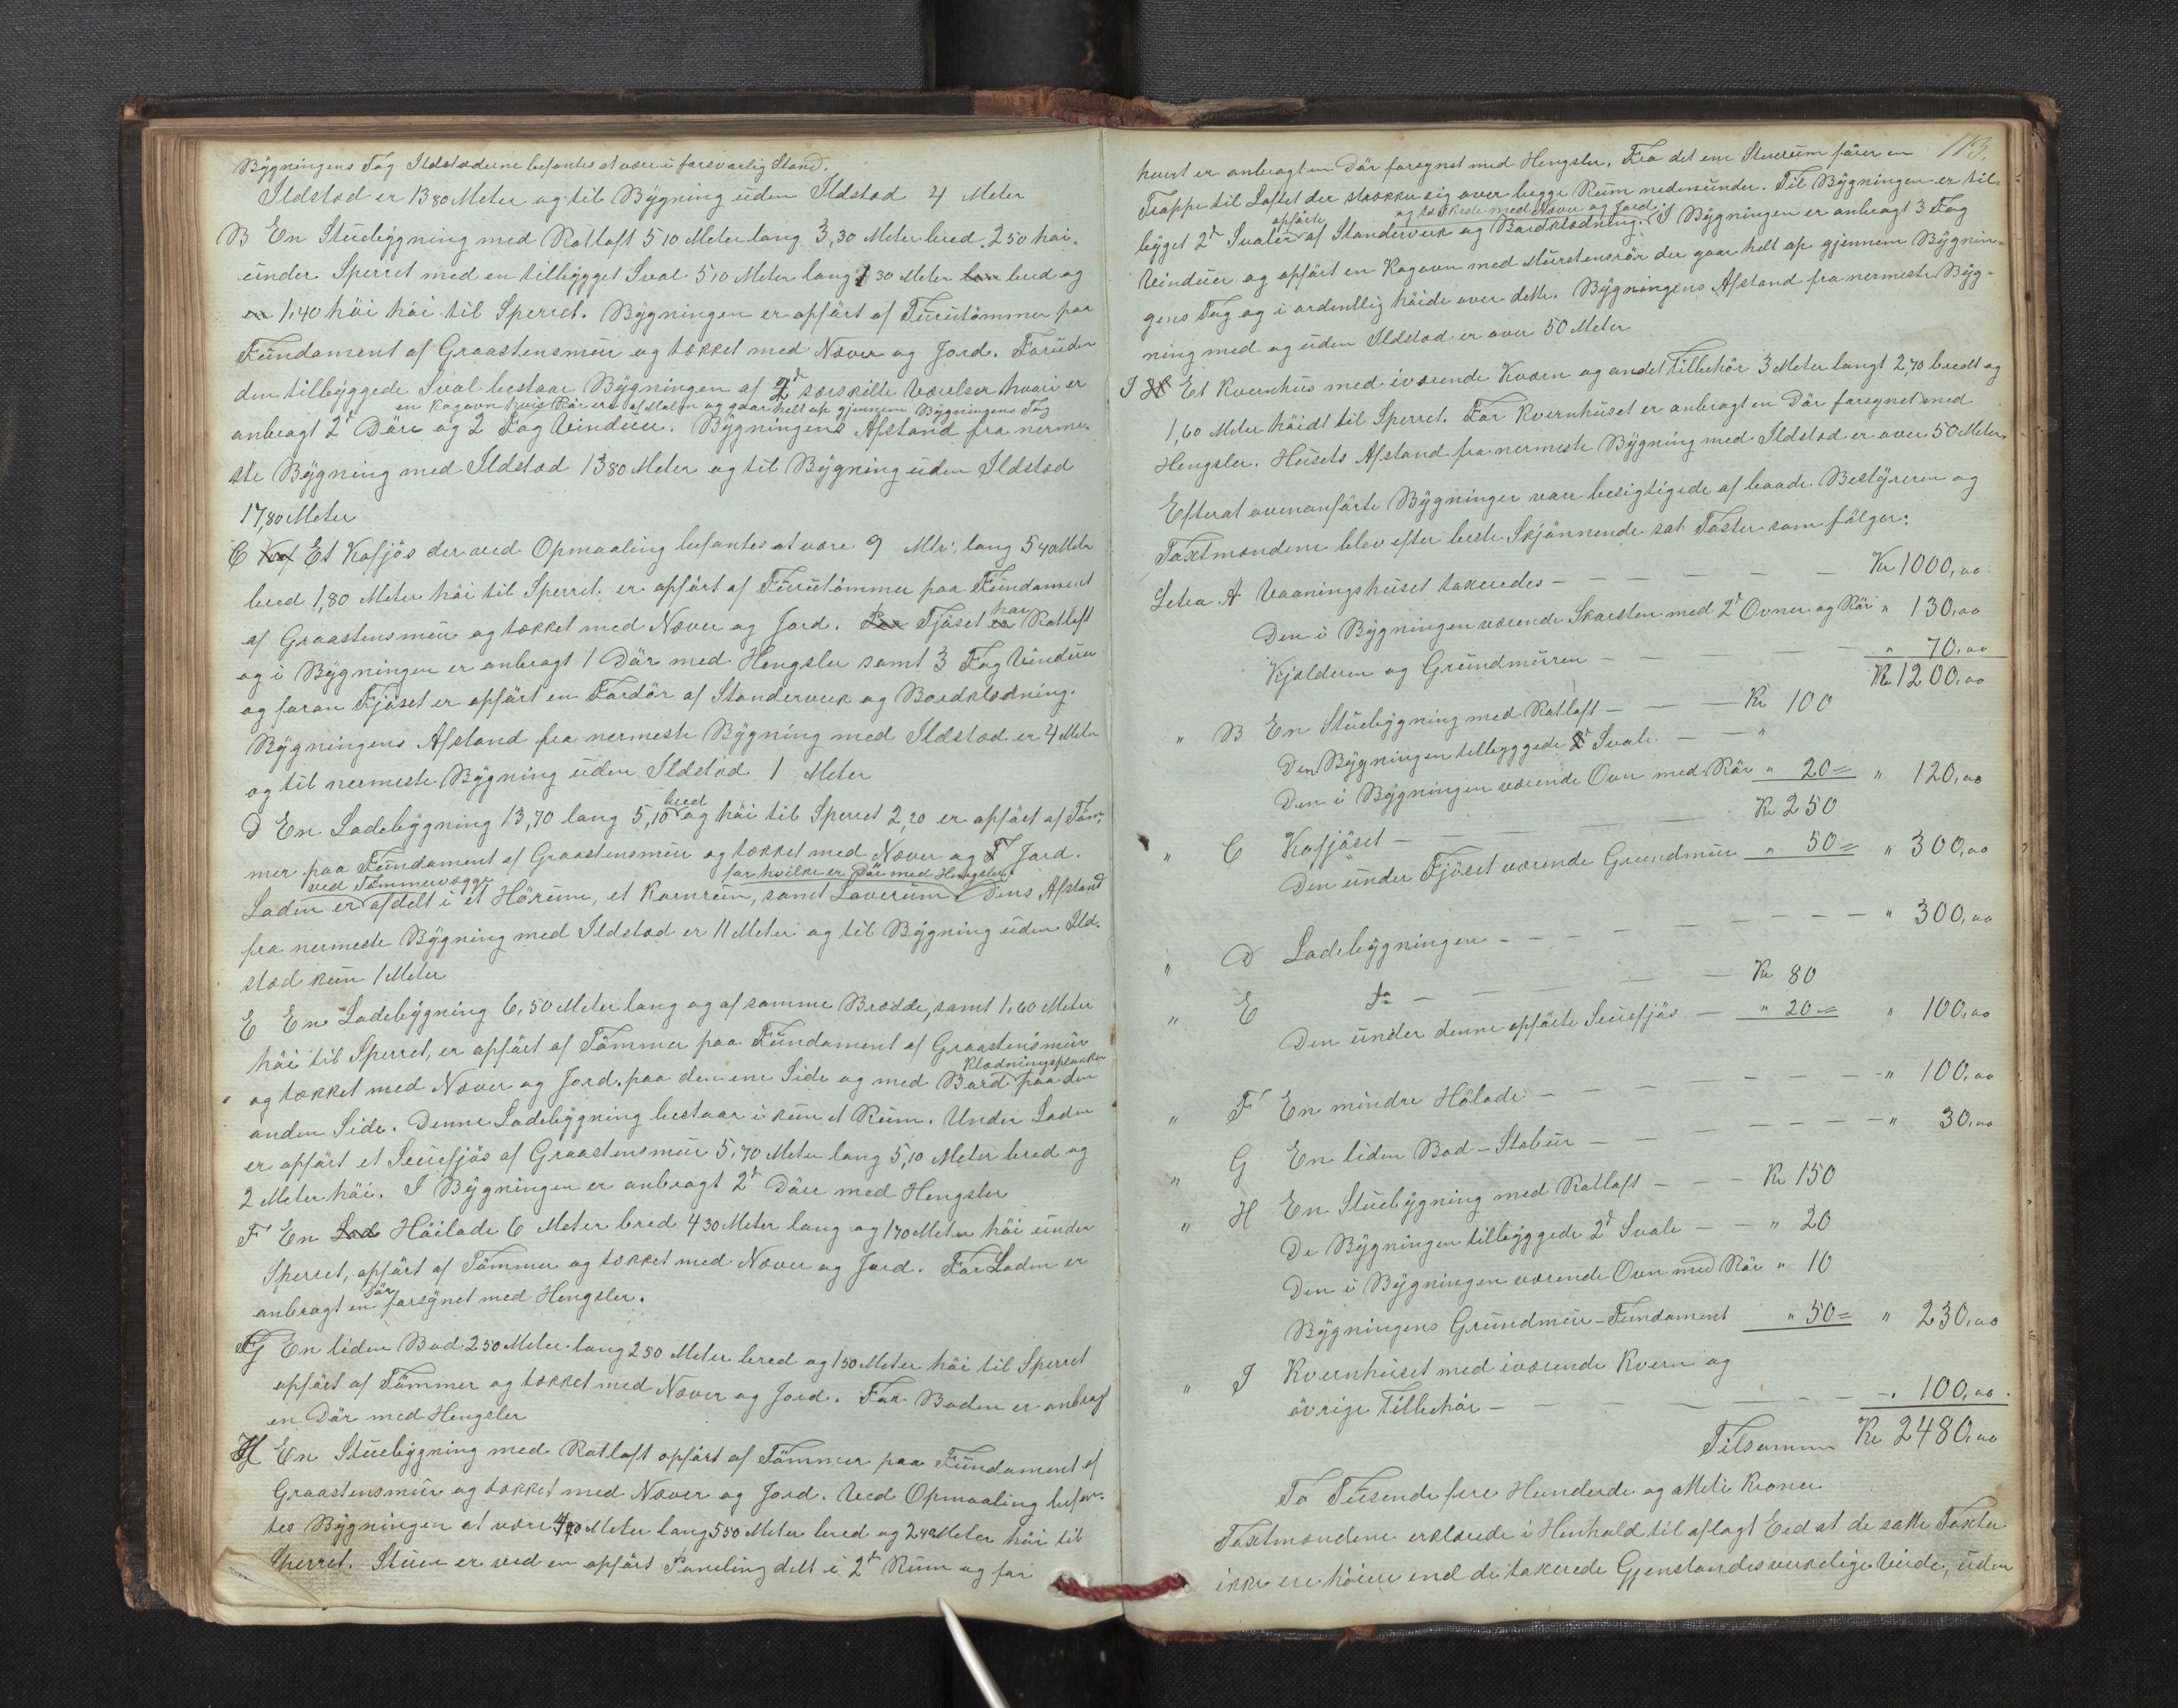 Bygningens Tag Ildstæderne befantes at være i forsvarlig Stand.
Ildstæd er 13 80 Meter og til Bygning uden Ildstæd 4 Meter
B En Stuebygning med Rotloft 5 10 Meter lang 3,30 Meter bred 2 50 höi
under Sperret med en tilbygget Sval 5 10 Meter lang 1 30 Meter bred og
1,40 höi höi til Sperret. Bygningen er opfört af Furutömmer paa
Fundament af Graastensmur og tækket med Næver og Jord. Foruden
den tilbyggede Sval bestaar Bygningen af 2de særskilte Værelser hvori er
en Kogovn hvis Rör ere af Malm og gaar helt op gjennem Bygningens Tag
anbragt 2de Döre og 2 Fag Vinduer. Bygningens Afstand fra nerme-
ste Bygning med Ildstæd 13 80 Meter og til Bygning uden Ildstæd
17,80 Meter
C Et Kofjös der ved Opmaaling befantes at være 9 Mtr. lang 5 40 Meter
bred 1,80 Meter höi til Sperret er opfört af Furutömmer paa Fundament
af Graastensmur og tækket med Næver og Jord. Fjöset har Rotloft
og i Bygningen er anbragt 1 Dör med Hengsler samt 3 Fag Vinduer
og foran Fjöset er opfört en Fordör af Standerverk og Bordklædning.
Bygningens Afstand fra nermeste Bygning med Ildstæd er 4 Meter
og til nermeste Bygning uden Ildstæd 1 Meter
D En Ladebygning 13,70 lang 5,10 bred og höi til Sperret 2,20 er opfört af Töm-
mer paa Fundament af Graastensmur og tækket med Næver og Jord.
ved Tömmervægge for hvilke er Dör med Hengsler.
Laden er afdelt i et Hörum, et Kornrum, samt Laverum. Dens Afstand
fra nermeste Bygning med Ildstæd er 11 Meter og til Bygning uden Ild-
stæd kun 1 Meter
E En Ladebygning 6,50 Meter lang og af samme Brædde, samt 1,60 Meter
höi til Sperret, er opfört af Tömmer paa Fundament af Graastensmur
og tækket med Næver og Jord. paa den ene Side og med Bord Klædningsplanker paa den
anden Side. Denne Ladebygning bestaar i kun et Rum. Under Laden
er opfört et Seuefjös af Graastensmur 5,70 Meter lang 5,10 Meter bred og
2 Meter höi. I Bygningen er anbragt 2de Döre med Hengsler
F En Höilade 6 Meter bred 4 30 Meter lang og 1 70 Meter höi under
Sperret, opfört af Tömmer og tækket med Næver og Jord. For Laden er
anbragt en Dör forsynet med Hengsler.
G En liden Bod 2 50 Meter lang 2 50 Meter bred og 1 50 Meter höi til Sperret
opfört af Tömmer og tækket med Næver og Jord. For Boden er anbragt
en Dör med Hengsler
H En Stuebygning med Rotloft opfört af Tömmer paa Fundament af
Graastensmur og tækket med Næver og Jord. Ved Opmaaling befan-
tes Bygningen at være Meter lang 5 50 Meter bred og 2 40 Meter höi til
Sperret. Stuen er ved en opfört Paneling delt i 2de Rum og for
113.
hvert er anbragt en Dör forsynet med Hengsler. Fra det ene Stuerum förer en
Trappe til Loftet der strækker sig over begge Rum nedenunder. Til Bygningen er til-
opförte og tækkede med Næver og Jord.
bygget 2de Svaler af Standerverk og Bordklædning. I Bygningen er anbragt 3 Fag
Vinduer og opfört en Kogovn med Murstensrör der gaar helt op gjennem Bygnin-
gens Tag og i ordentlig höide over dette. Bygningens Afstand fra nermeste Byg-
ning med og uden Ildstæd er over 50 Meter
I Et Kvernhus med iværende Kværn og andet Tilbehör 3 Meter langt 2,70 bredt og
1,60 Meter höidt til Sperret. For Kvernhuset er anbragt en Dör forsynet med
Hengsler. Husets Afstand fra nermeste Bygning med Ildstæd er over 50 Meter.
Efterat ovenanförte Bygninger vare besigtigede af baade Bestyreren og
Taxtmændene blev efter beste Skjönnende sat Taxter som fölger:
Letra A Vaaningshuset takeredes - - - - Kr 1000,00
Den i Bygningen værende Skorsten med 2de Ovner og Rör " 130,00
Kjælderen og Grundmuren - - - " 70,00
Kr 1200,00
" B En Stuebygning med Rotloft - - - Kr 100
Den Bygningen tilbyggede Sval - - "
Den i Bygningen værende Ovn med Rör " 20= " 120,00
" C Kofjöset - - - Kr 250
Den under Fjöset værende Grundmur " 50= " 300,00
" D Ladebygningen - - - - - " 300,00
" E do - - - Kr 80
Den under denne opförte Seuefjös - " 20= " 100,00
" F En mindre Hölade - - - - - " 100,00
" G En liden Bod - Stabur - - - - - " 30,00
" H En Stuebygning med Rotloft - - - Kr 150
De Bygningen tilbyggede 2de Svale - - " 20
Den i Bygningen værende Ovn med Rör " 10
Bygningens Grundmur - Fundament " 50= " 230,00
" I Kvernhuset med iværende Kvern og
övrige Tilbehör - - - - - " 100,00.
Tilsammen Kr 2480,00
To Tusende fire Hundrede og otteti Kroner
Taxtmændene erklærede i Henhold til aflagt Eed at de satte Taxter
ikke ere höiere end de takerede Gjenstandes virkelige Værde, uden